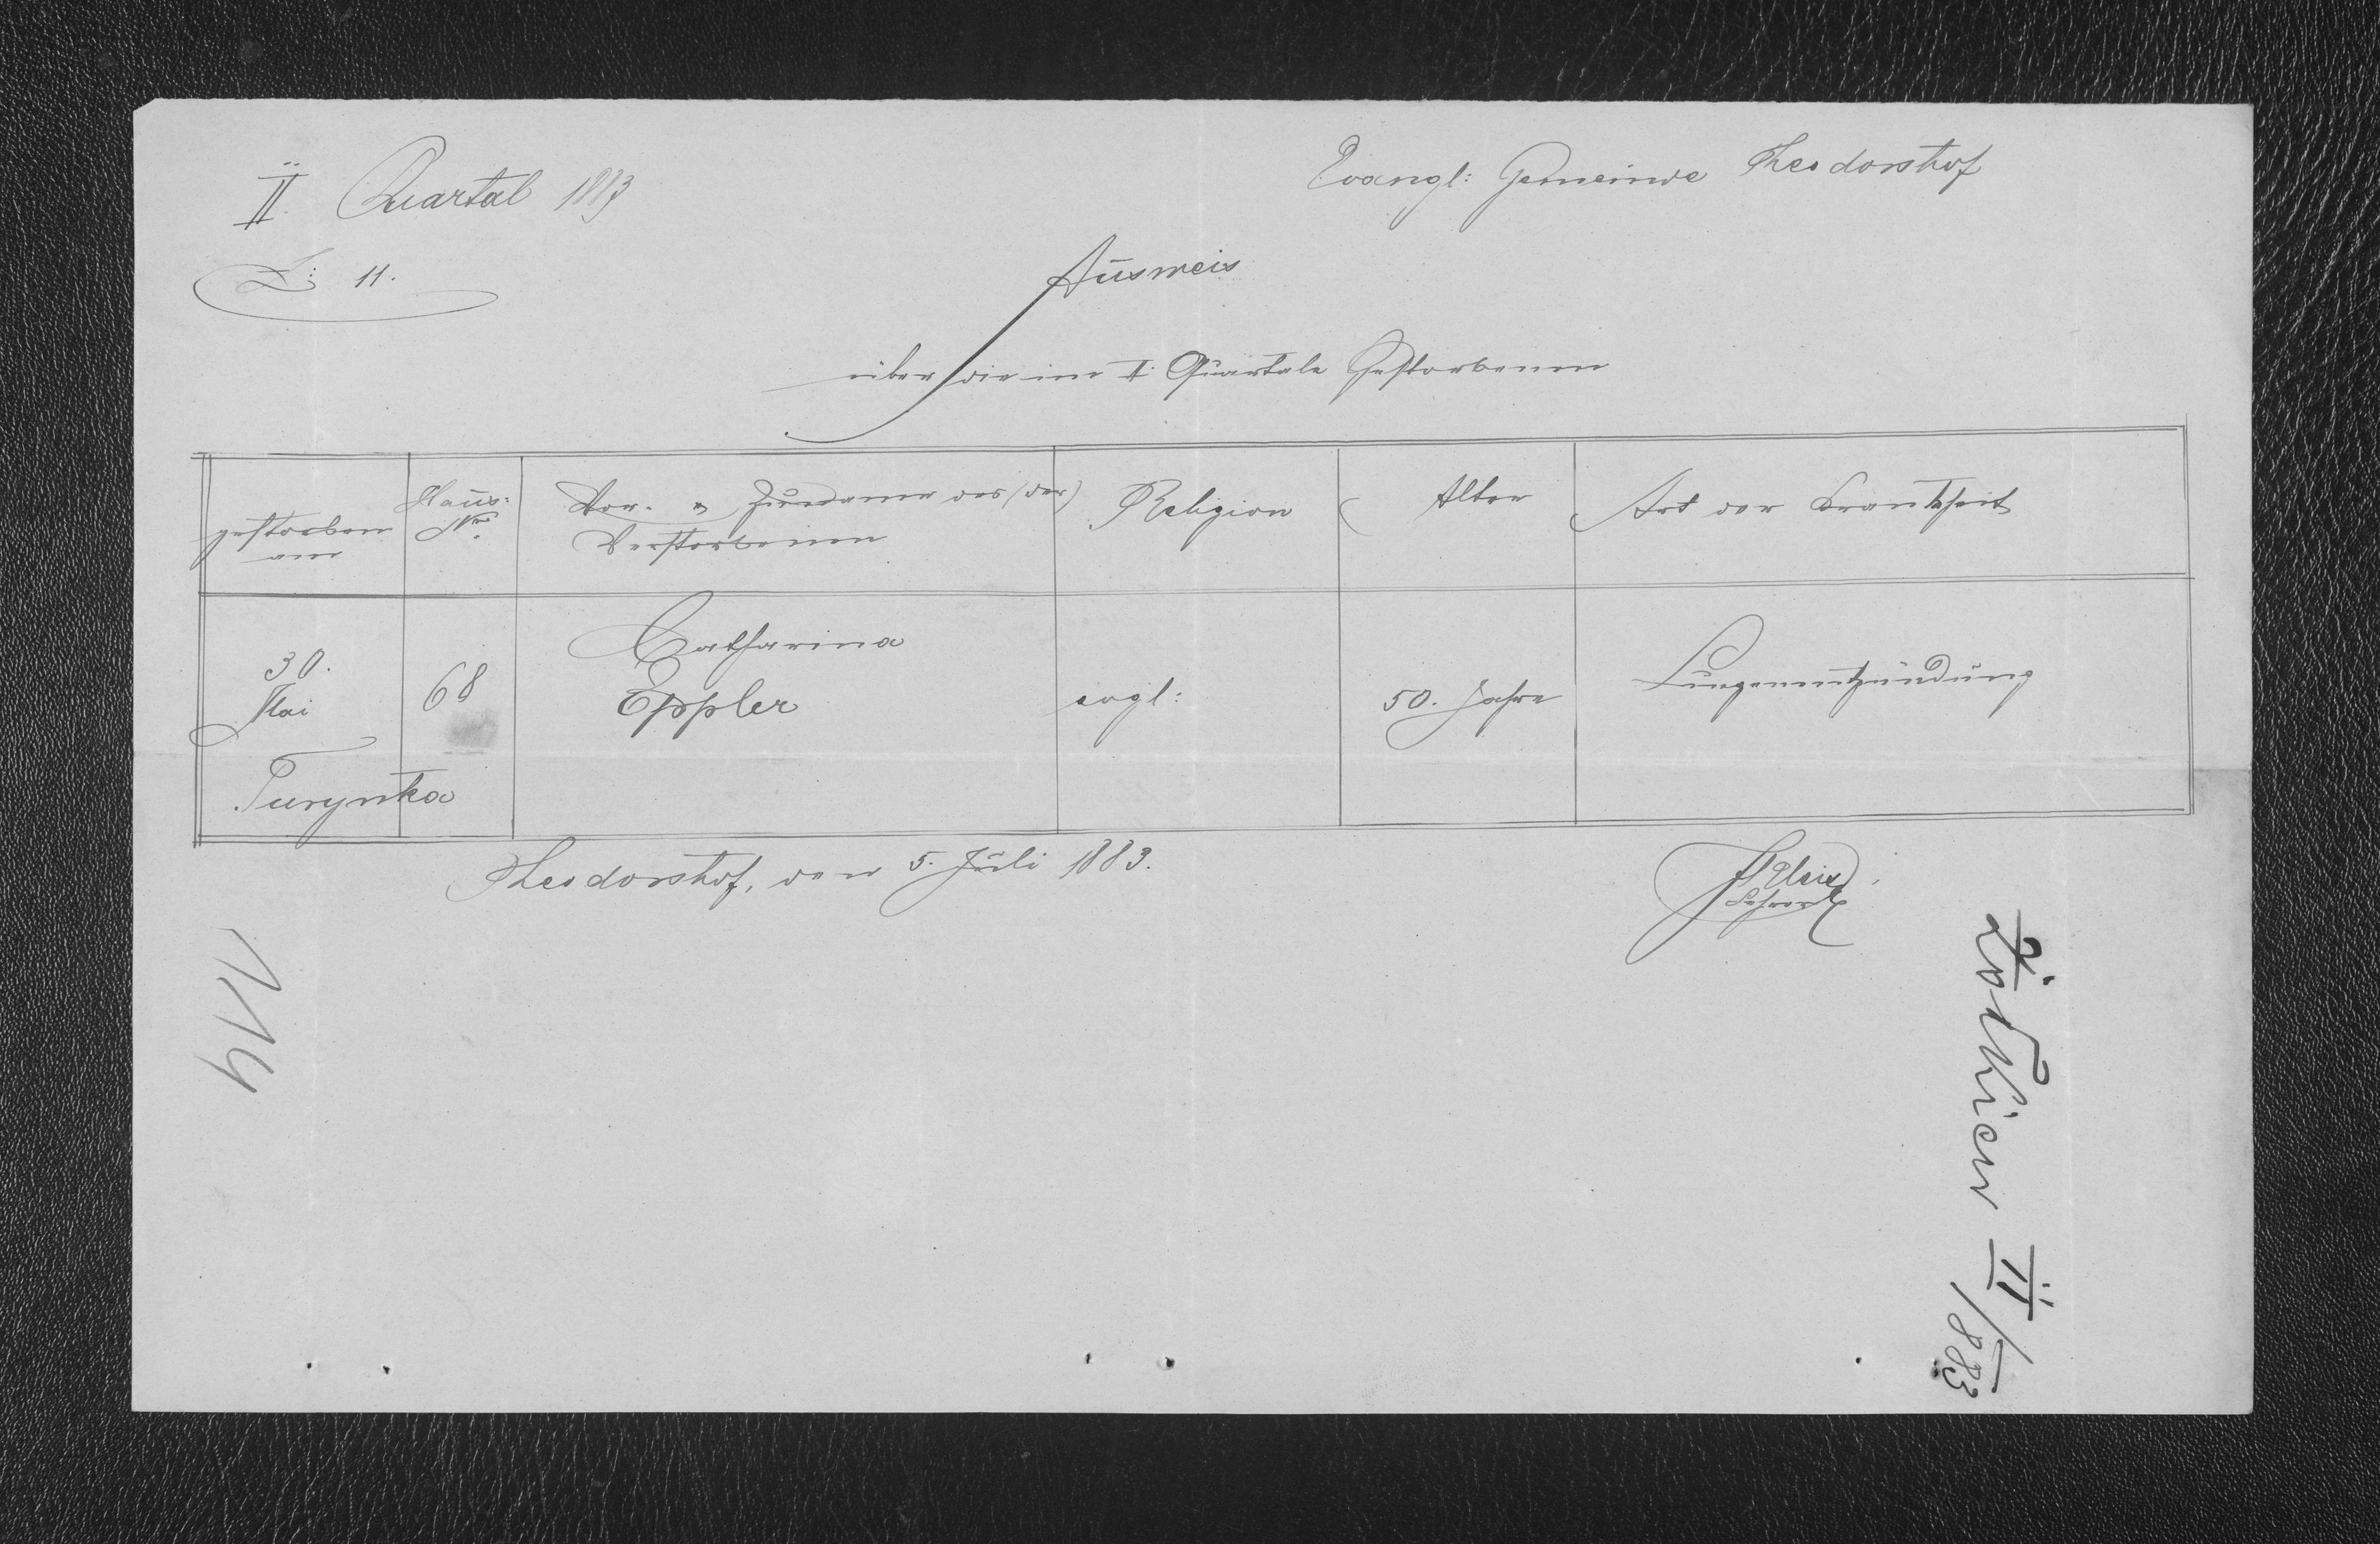 II. Quartal 1883
Evangl: Gemeinde Theodorshof
Z: 11.
Ausweis
über die im II. Quartale Gestorbenen
gestorben
am
Haus:
Nro.
Vor- u Zuname des (der)
Verstorbenen
Religion
Alter
Art der Krankheit
30.
Mai
68
Catharina
Eppler
evgl:
50. Jahre
Lungenentzündung
Turynka
Theodorshof, den 5. Juli 1883.
Lehrer
114
Żółkiew II/1883